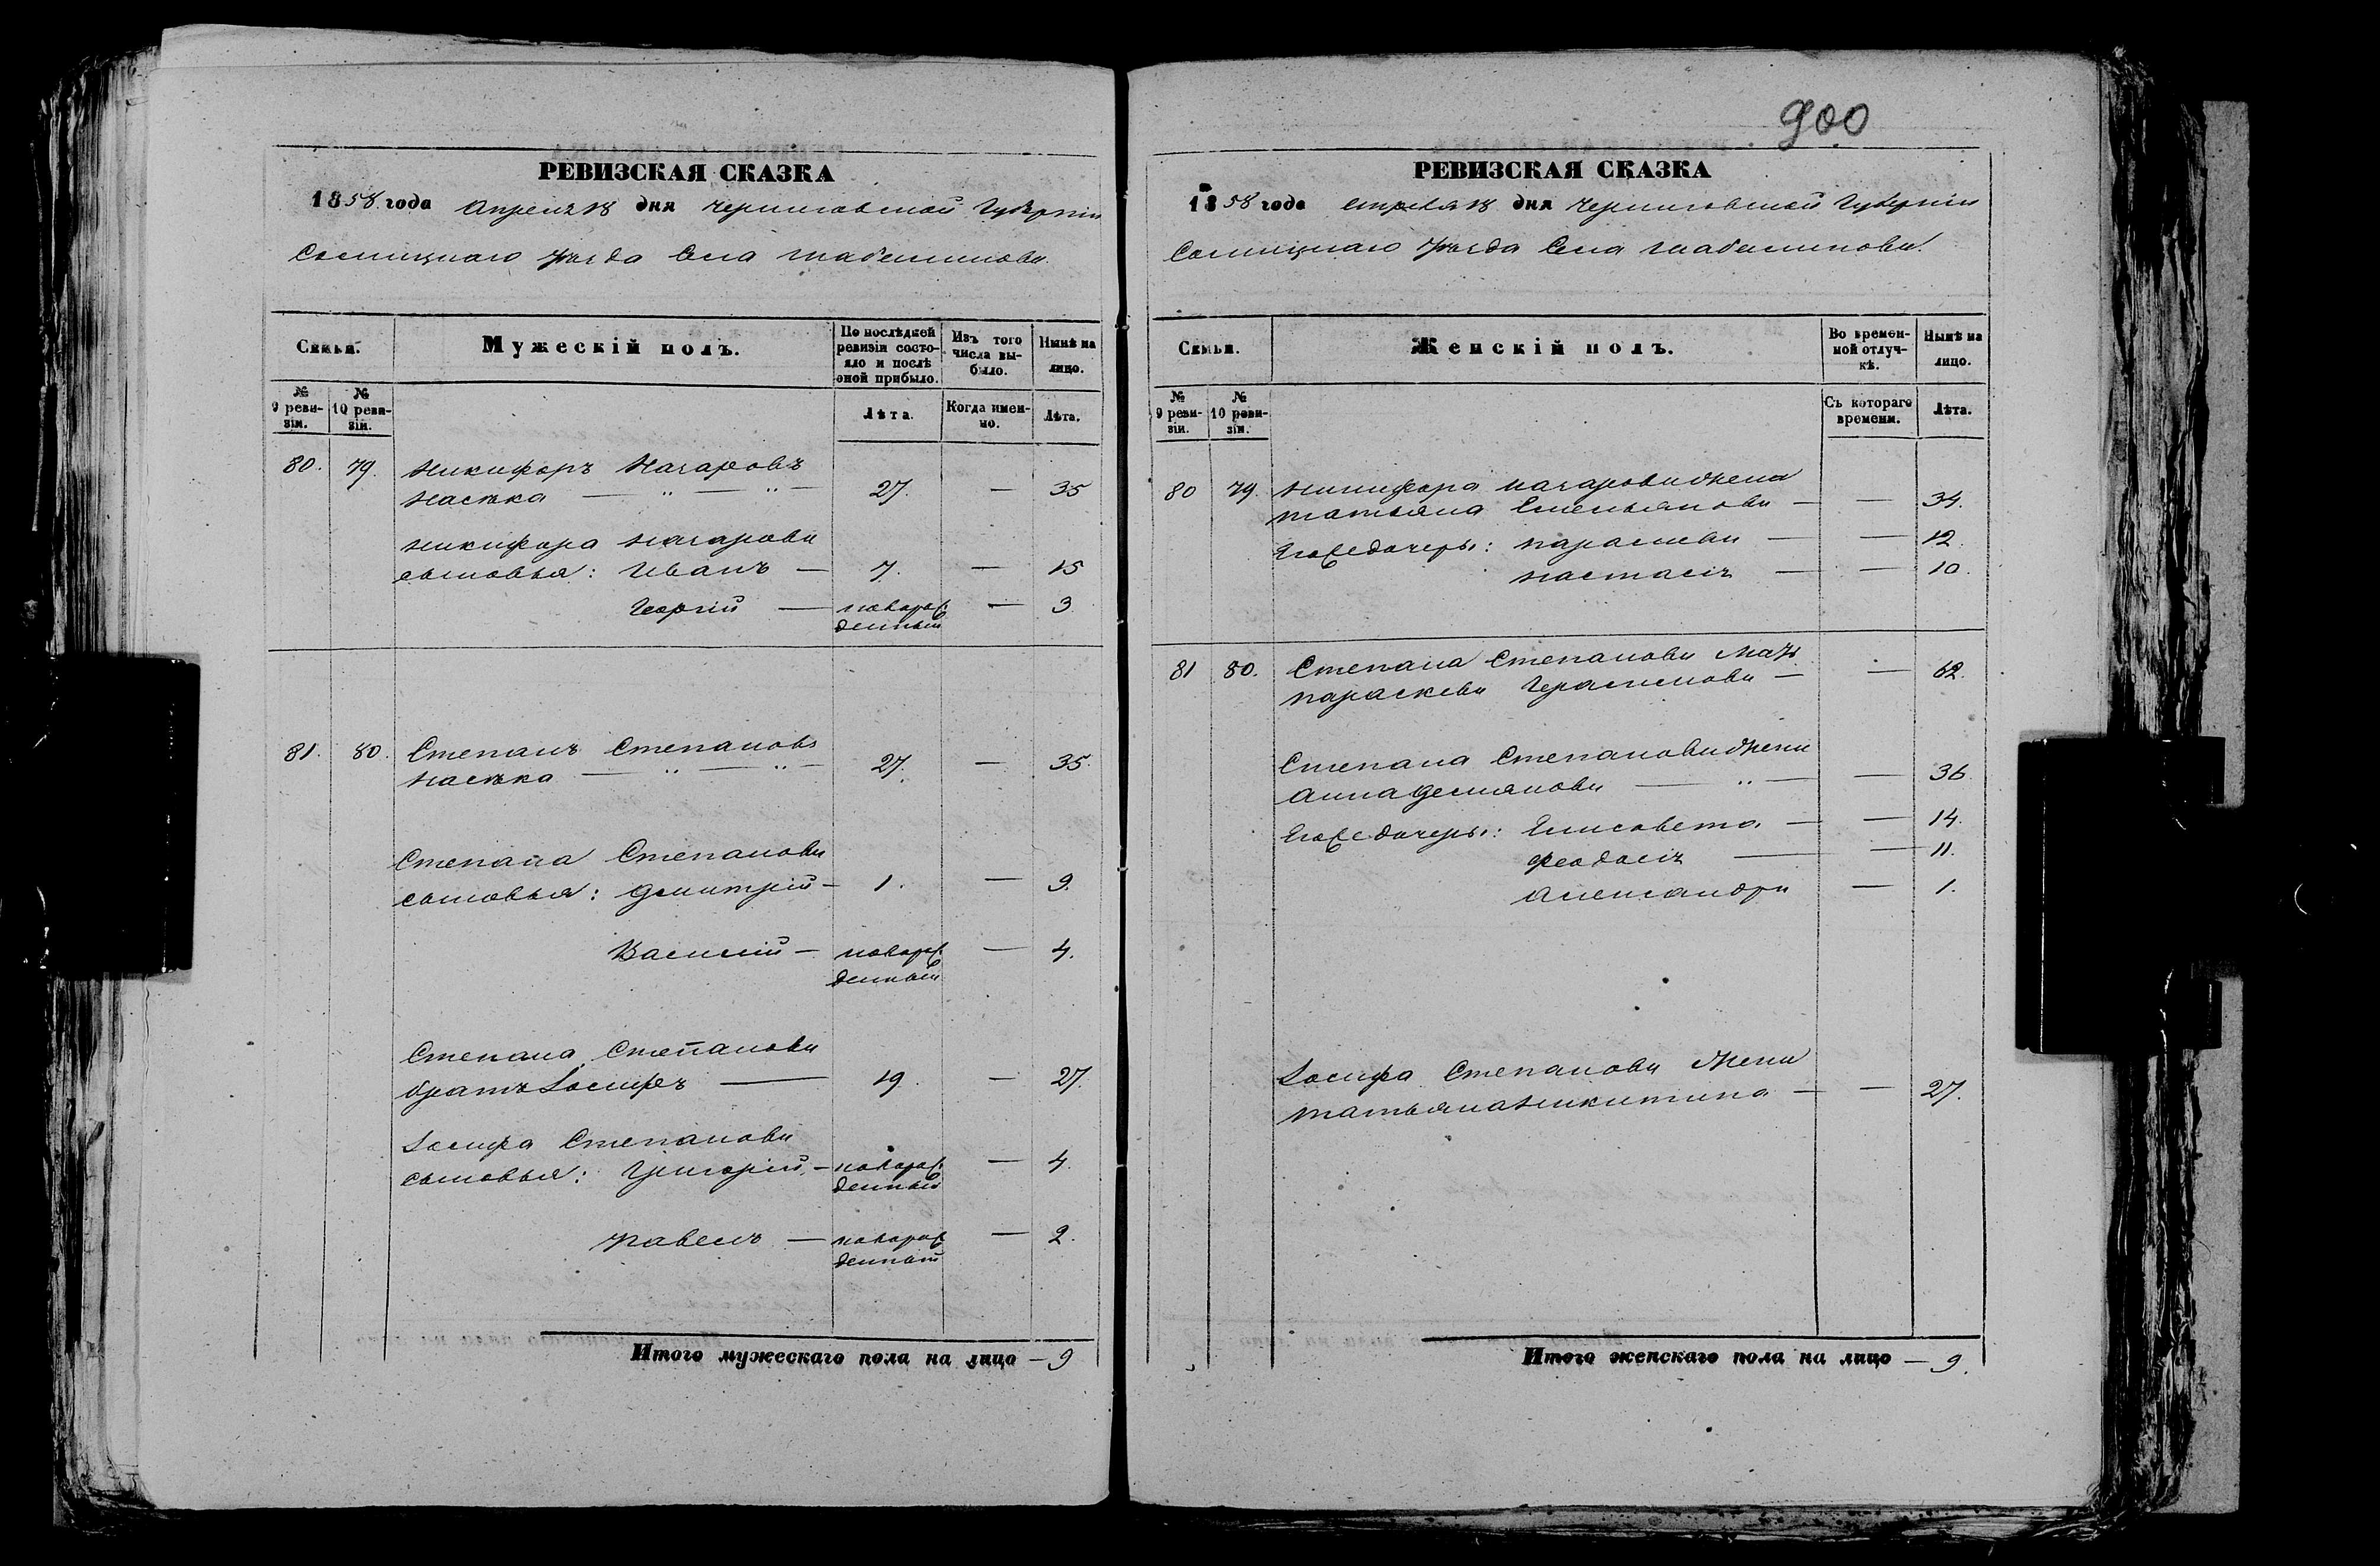 900
РЕВИЗСКАЯ СКАЗКА
1858 года Апреля 18 дня Черниговской Губерніи
Сосницкаго уѣзда Села Шабалинова.
Семьи. Мужескій полъ. По послѣдней ревизіи состояло и послѣ оной прибыло. Изъ того числа выбыло. Нынѣ на лицо.
№ 9 ревизіи. № 10 ревизіи. Лѣта. Когда именно. Лѣта.
80. 79. Никифоръ Назаровъ
Насѣка — „ — „ — 27. — 35
Никифора Назарова
сыновья: Иванъ — 7. — 15
Георгій — новорож
денный — 3
81. 80. Степанъ Степановъ
Насѣка — „ — „ — 27. — 35.
Степана Степанова
сыновья: Дмитрій — 1. — 9.
Василій — новорож
денный — 4.
Степана Степанова
братъ Іосифъ — 19. — 27.
Іосифа Степанова
сыновья: Григорій, — новорож
денный — 4.
Павелъ — новорож
денный — 2.
Итого мужескаго пола на лицо — 9
РЕВИЗСКАЯ СКАЗКА
1858 года Апреля 18 дня Черниговской Губерніи
Сосницкаго уѣзда Села Шабалинова.
Семьи. Женскій полъ. Во временной отлучкѣ. Нынѣ на лицо.
№ 9 ревизіи. № 10 ревизіи. Съ котораго времени. Лѣта.
80 79. Никифора Назарова жена
Татьяна Емельянова — — 34.
Его дочеры: Параскева — — 12.
Настасія — — 10.
81 80. Степана Степанова Мать
Параскева Герасимова — — 62.
Степана Степанова жена
Анна Демянова — „ — — 36
Его дочеры: Елисовета — — 14.
Феодосія — — 11.
Александра — 1.
Іосифа Степанова Жена
Татьяна Никитина — — 27.
Итого женскаго пола на лицо — 9.